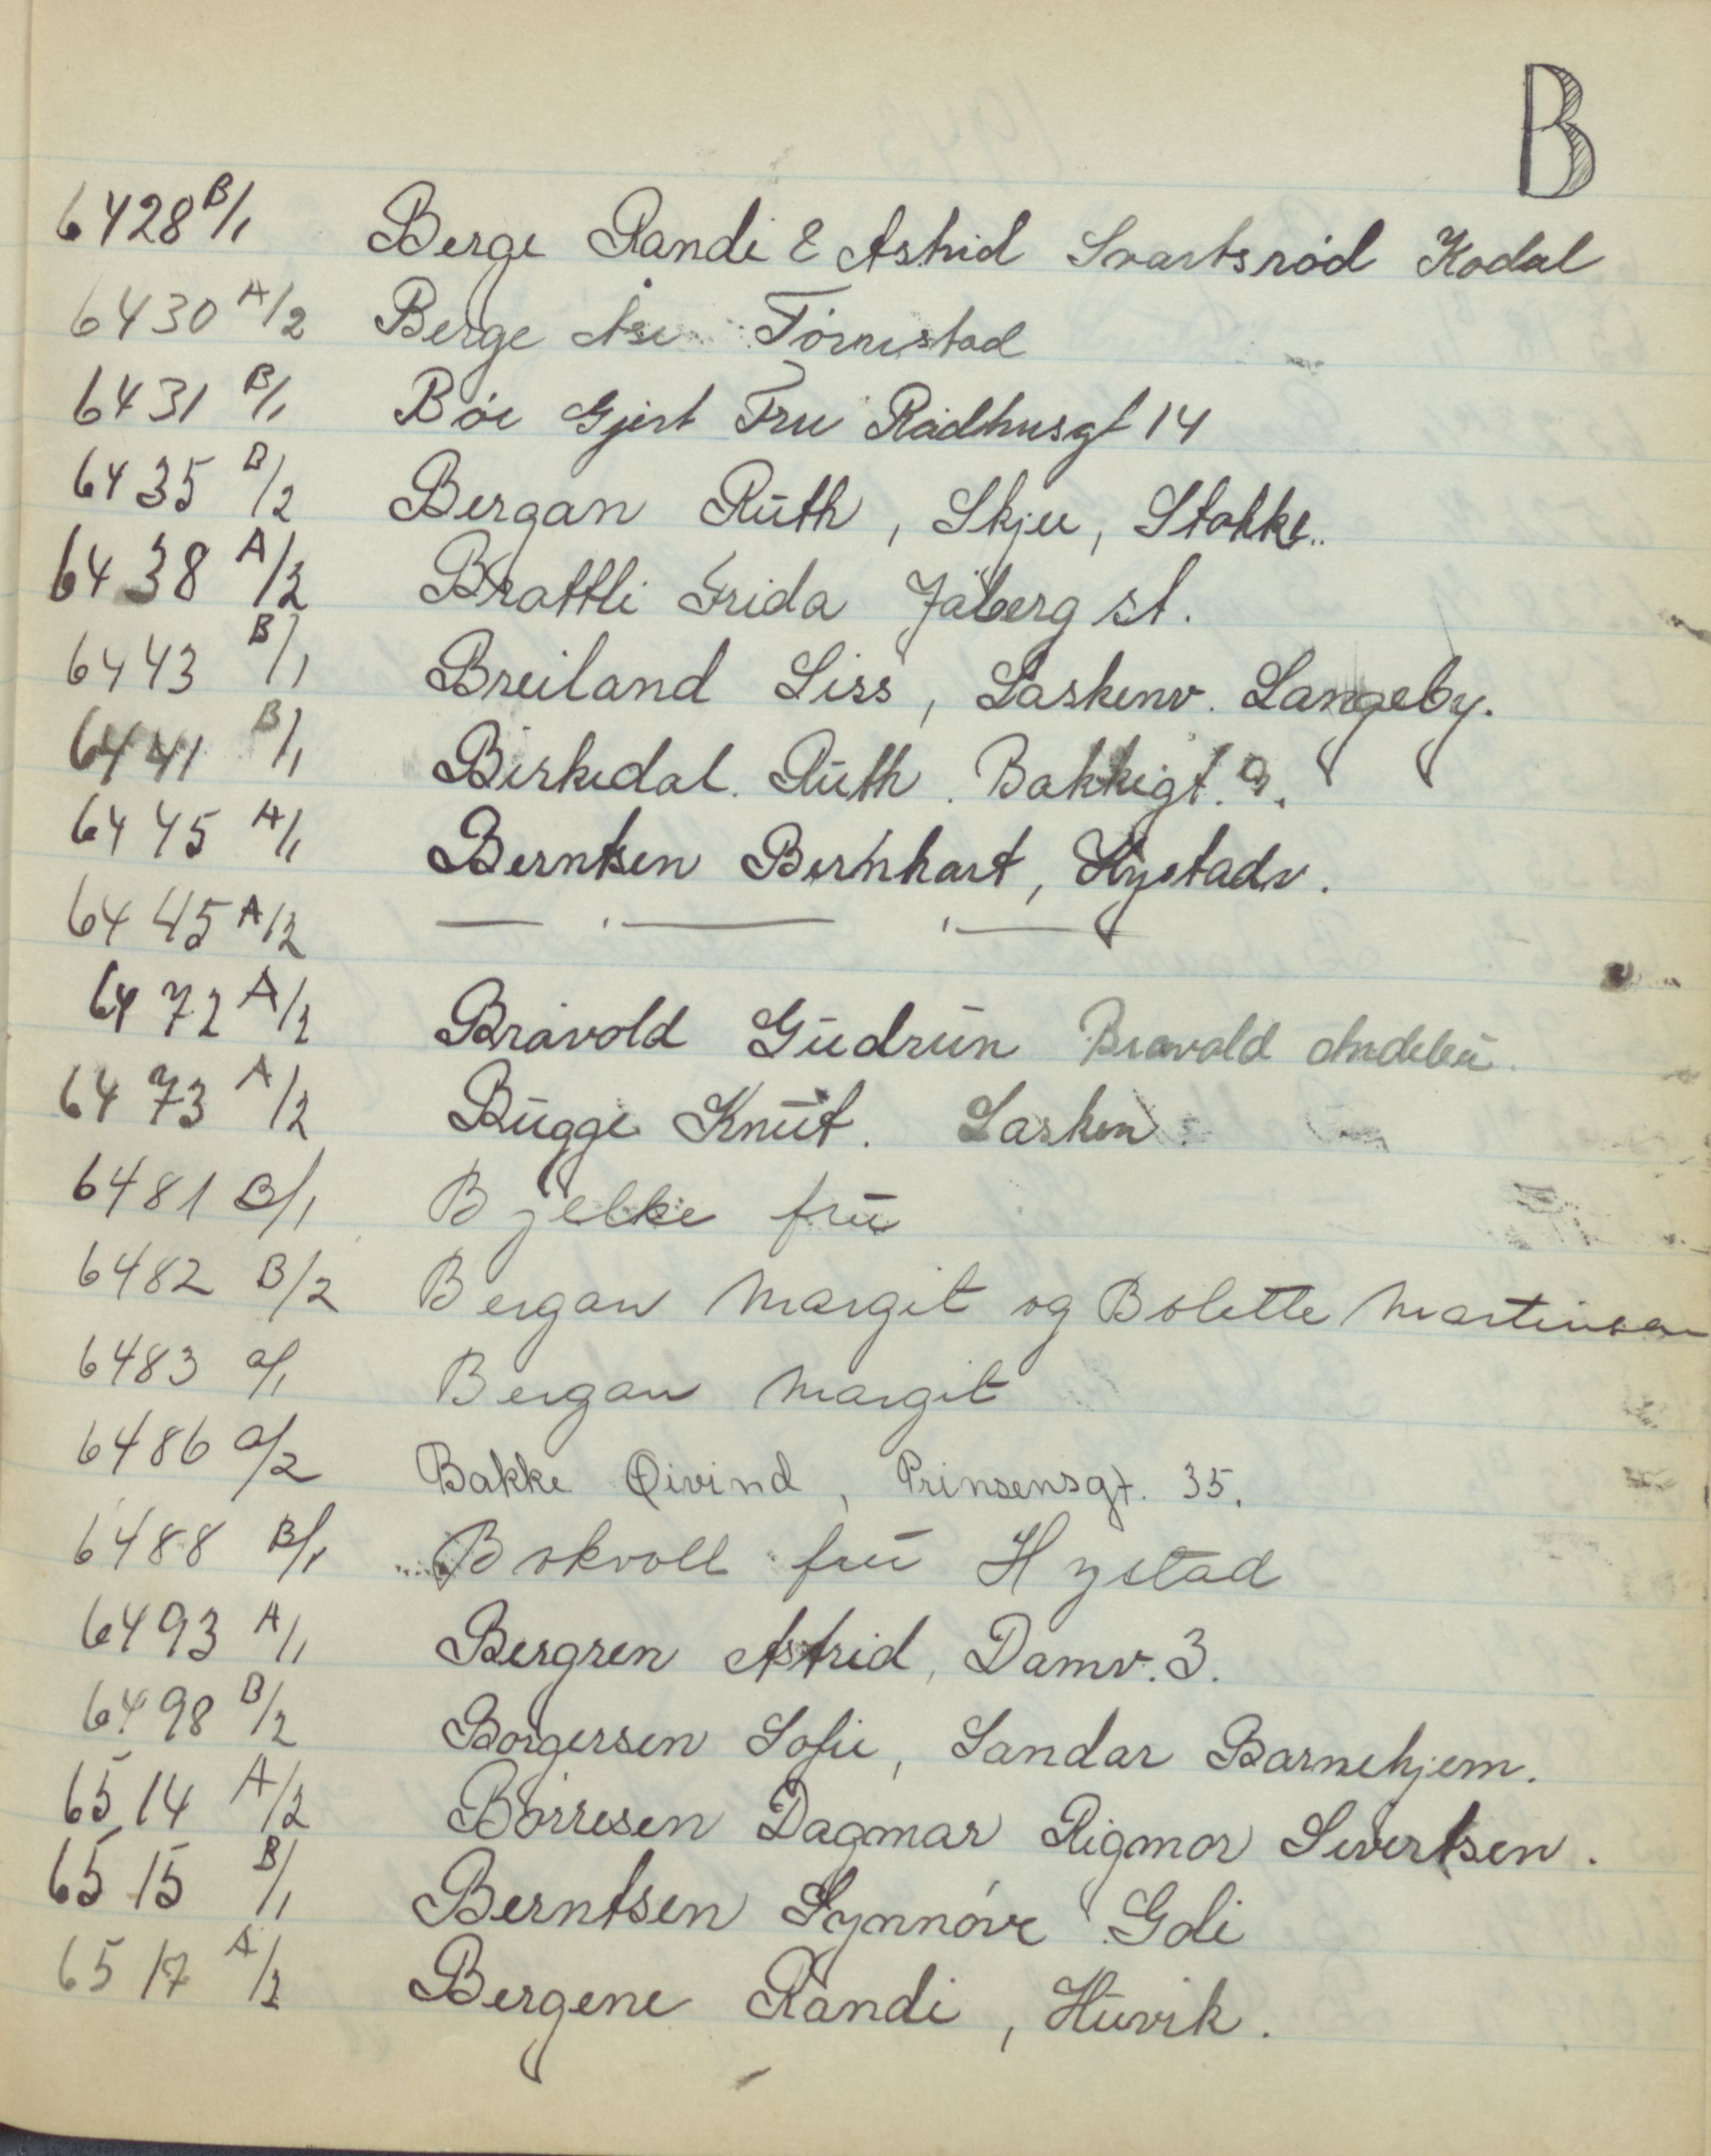 B
6428 B/1 Berge Randi & Astrid Svartsrød Kodal
6430 A/2 Berge Åse Fornestad
6431 B/1 Bøe Gjert Fru Rådhusgt 14
6435 B/2 Bergan Ruth, Skjee, Stokke..
6438 A/2 Brattli Frida Jåberg st.
6443 B/1 Breiland Liss, Laskenv. Langeby.
6441 B/1 Birkedal. Ruth. Bakkigt. 9.
6445 A/1 Berntsen Bernhart, Hystadv.
6445 A/2 — " — " —
6472 A/2 Bråvold Gudrun Bravold Andebu.
6473 A/2 Bugge Knut. Lasken.
6481 B/1 Bjelke fru
6482 B/2 Bergan Margit og Bolette Martinsen
6483 a/1 Bergan Margit
6486 a/2 Bakke Øivind, Prinsensgt. 35.
6488 B/1 Bokvoll frú Hystad
6493 A/1 Bergren Astrid, Damv. 3.
6498 B/2 Borgersen Sofie, Sandar Barnehjem.
6514 A/2 Börresen Dagmar Rigmor Sivertsen.
6515 B/1 Berntsen Synnóve Goli
6517 A/2 Bergene Randi, Huvik.